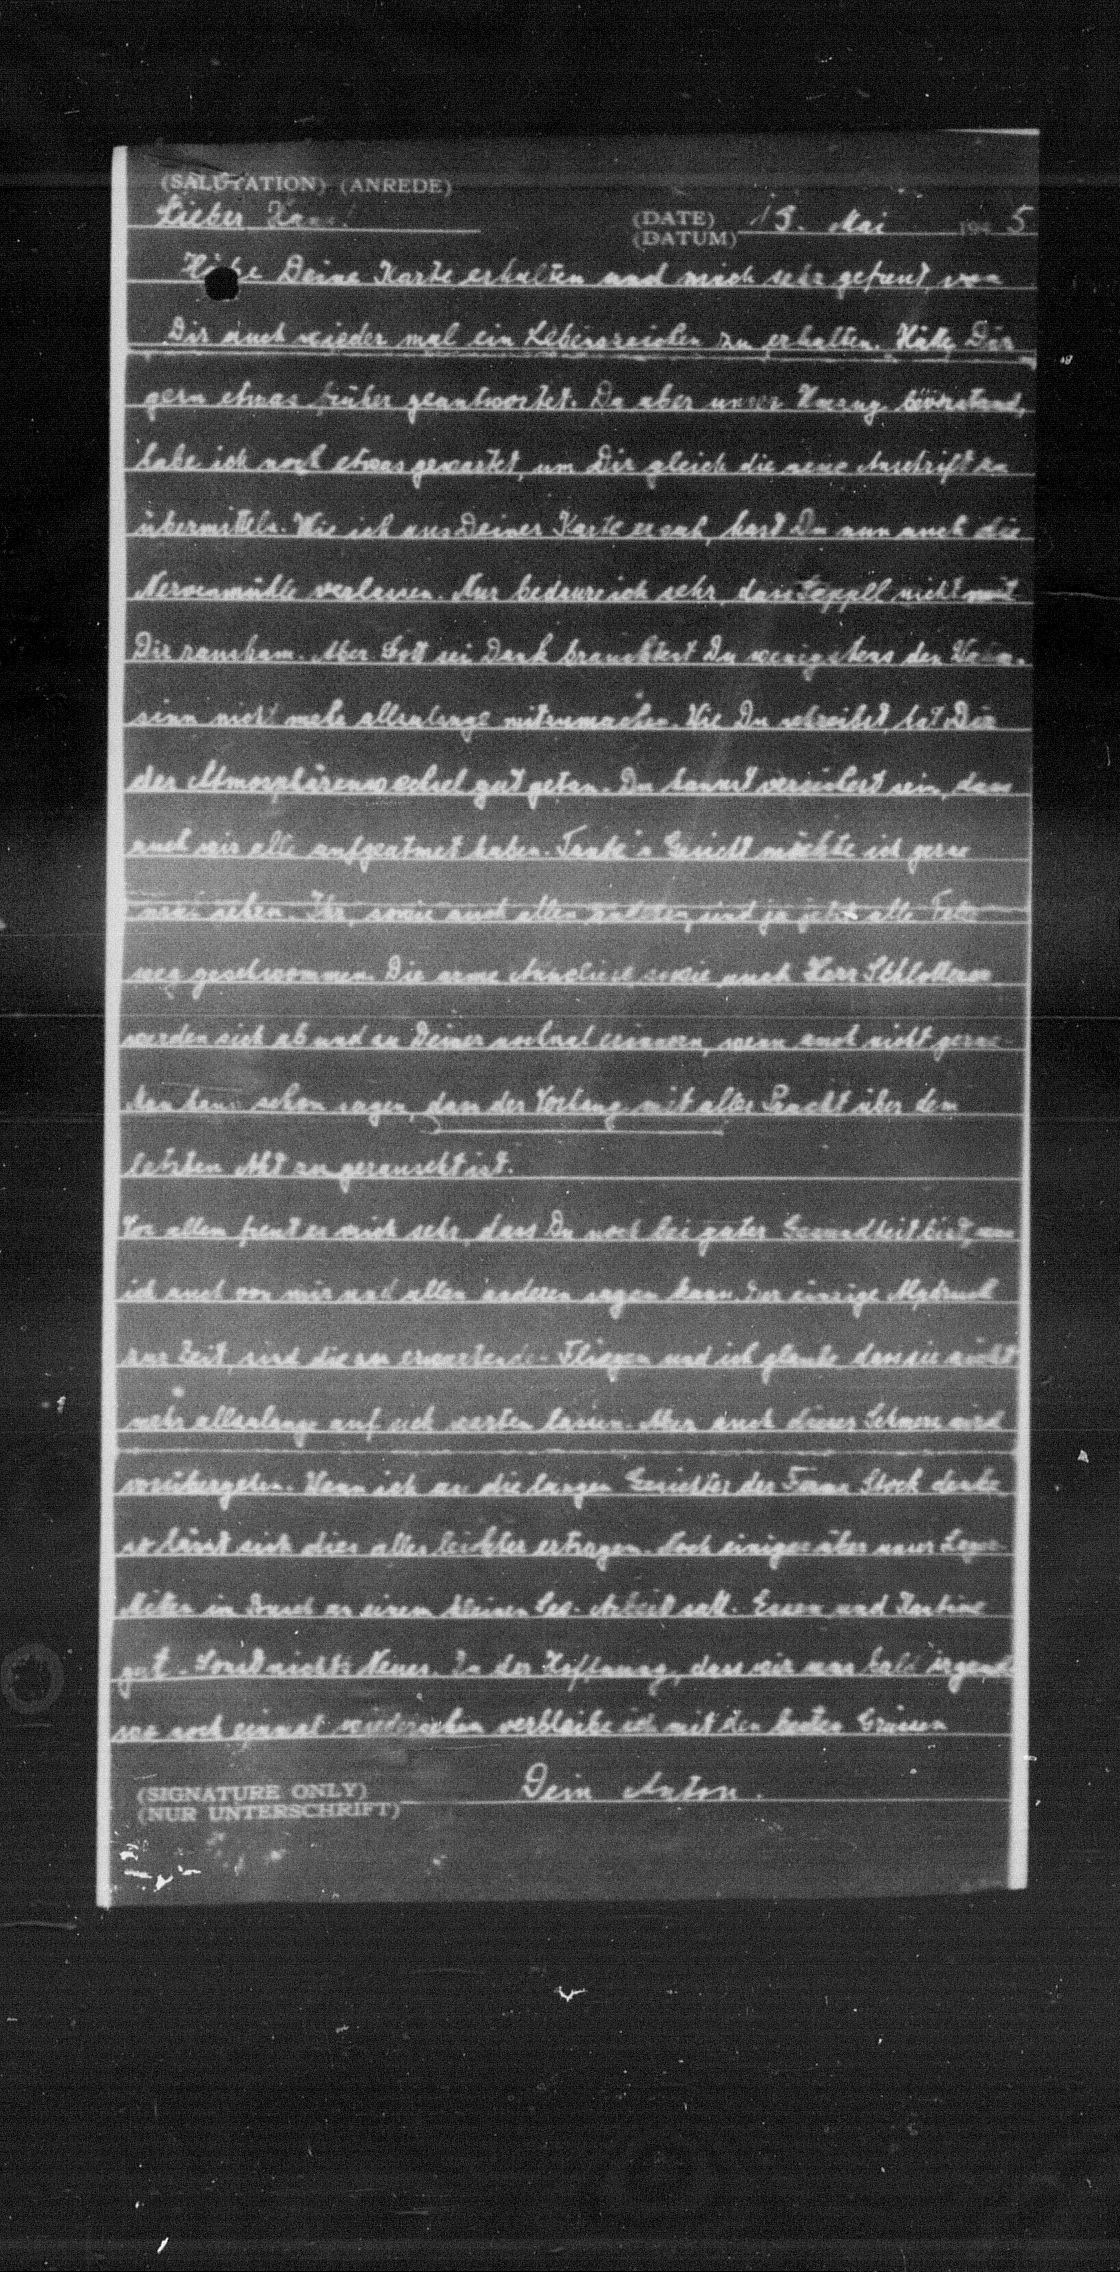 (SALUTATION) (ANREDE)
Lieber Hans!
(DATE) 15. Mai 194 5
(DATUM)
Habe Deine Karte erhalten und mich sehr gefreut, von
Dir auch wieder mal ein Lebenszeichen zu erhalten. Hätte Dir
gern etwas früher geantwortet. Da aber unser Umzug bevorstand,
habe ich noch etwas gewartet, um Dir gleich die neue Anschrift zu
übermitteln. Wie ich aus Deiner Karte ersah, hast Du nun auch die
Nervenmühle verlassen. Nur bedaure ich sehr, dass Seppll nicht mit
Dir rauskam. Aber Gott sei Dank brauchtest Du wenigstens den Wahn-
sinn nicht mehr allzulange mitzumachen. Wie Du schreibst, hat Dir
der Atmosphärenwechsel gut getan. Du kannst versichert sein, dass
auch wir alle aufgeatmet haben. Gesicht möchte ich gerne
mal sehen. Ihr, sowie auch allen anderen, sind ja jetzt alle
weg geschwommen. Die arme Anneliese sowie auch Herr
werden sich ab und zu Deiner nochmal erinnern, wenn auch nicht gerne.
Man kann schon sagen, dass der Vorhang mit aller Pracht über dem
letzten Akt zu gerauscht ist.
Vor allem freut es mich sehr, dass Du noch bei guter Gesundheit bist, was
ich auch von mir und allen anderen sagen kann. Der einzige Alpdruck
zur Zeit, sind die zu erwartenden Fliegen und ich glaube dass sie nicht
mehr allzulange auf sich warten lassen. Aber auch dieser Schmerz wird
vorübergehen. Wenn ich an die langen Gesichter der Firma Stock denke
so lässt sich dies alles leichter ertragen. Noch einiges über unser Lager.
Mitten im Busch an einem kleinen See. Arbeit satt. Essen und Kantine
gut. Sonst nichts Neues. In der Hoffnung, dass wir uns bald irgend
wo noch einmal wiedersehen verbleibe ich mit den besten Grüssen
(SIGNATURE ONLY) Dein Anton.
(NUR UNTERSCHRIFT)